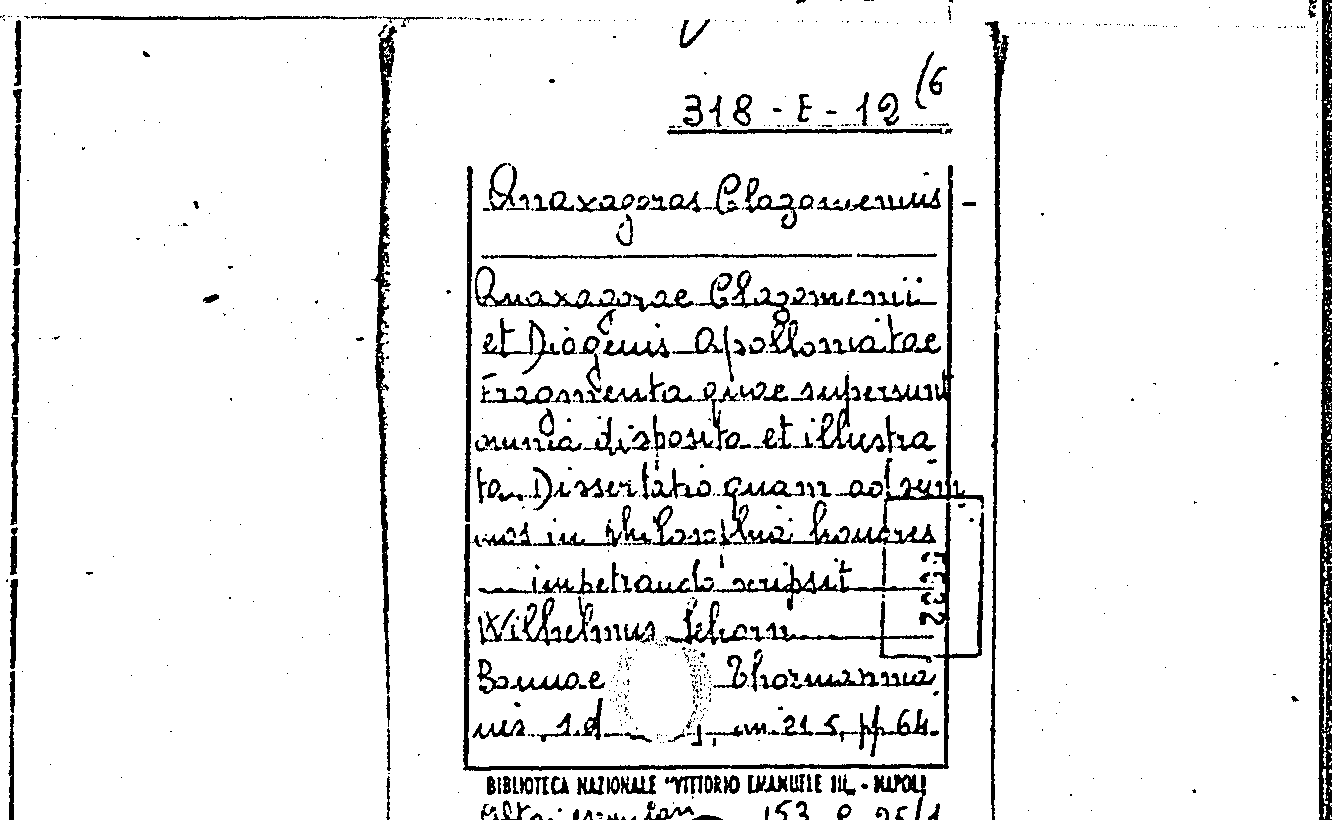 318-E-12 (6
Anaxagoras Clazomenius -
Anaxagorae Clazomenii
et Diogenis Apolloniatae
Fragmenta quae supersunt
omnia disposita et illustra
ta. Dissertatio quam ad sum
mos in philosophia honores
impetrando scripsit
Wilhelmus Schorn
Bonnae Thormannia
nis, 1.d , cm. 21.5, pp 64.
BIBLIOTECA NAZIONALE "VITTORIO EMANUELE III" - NAPOLI
153